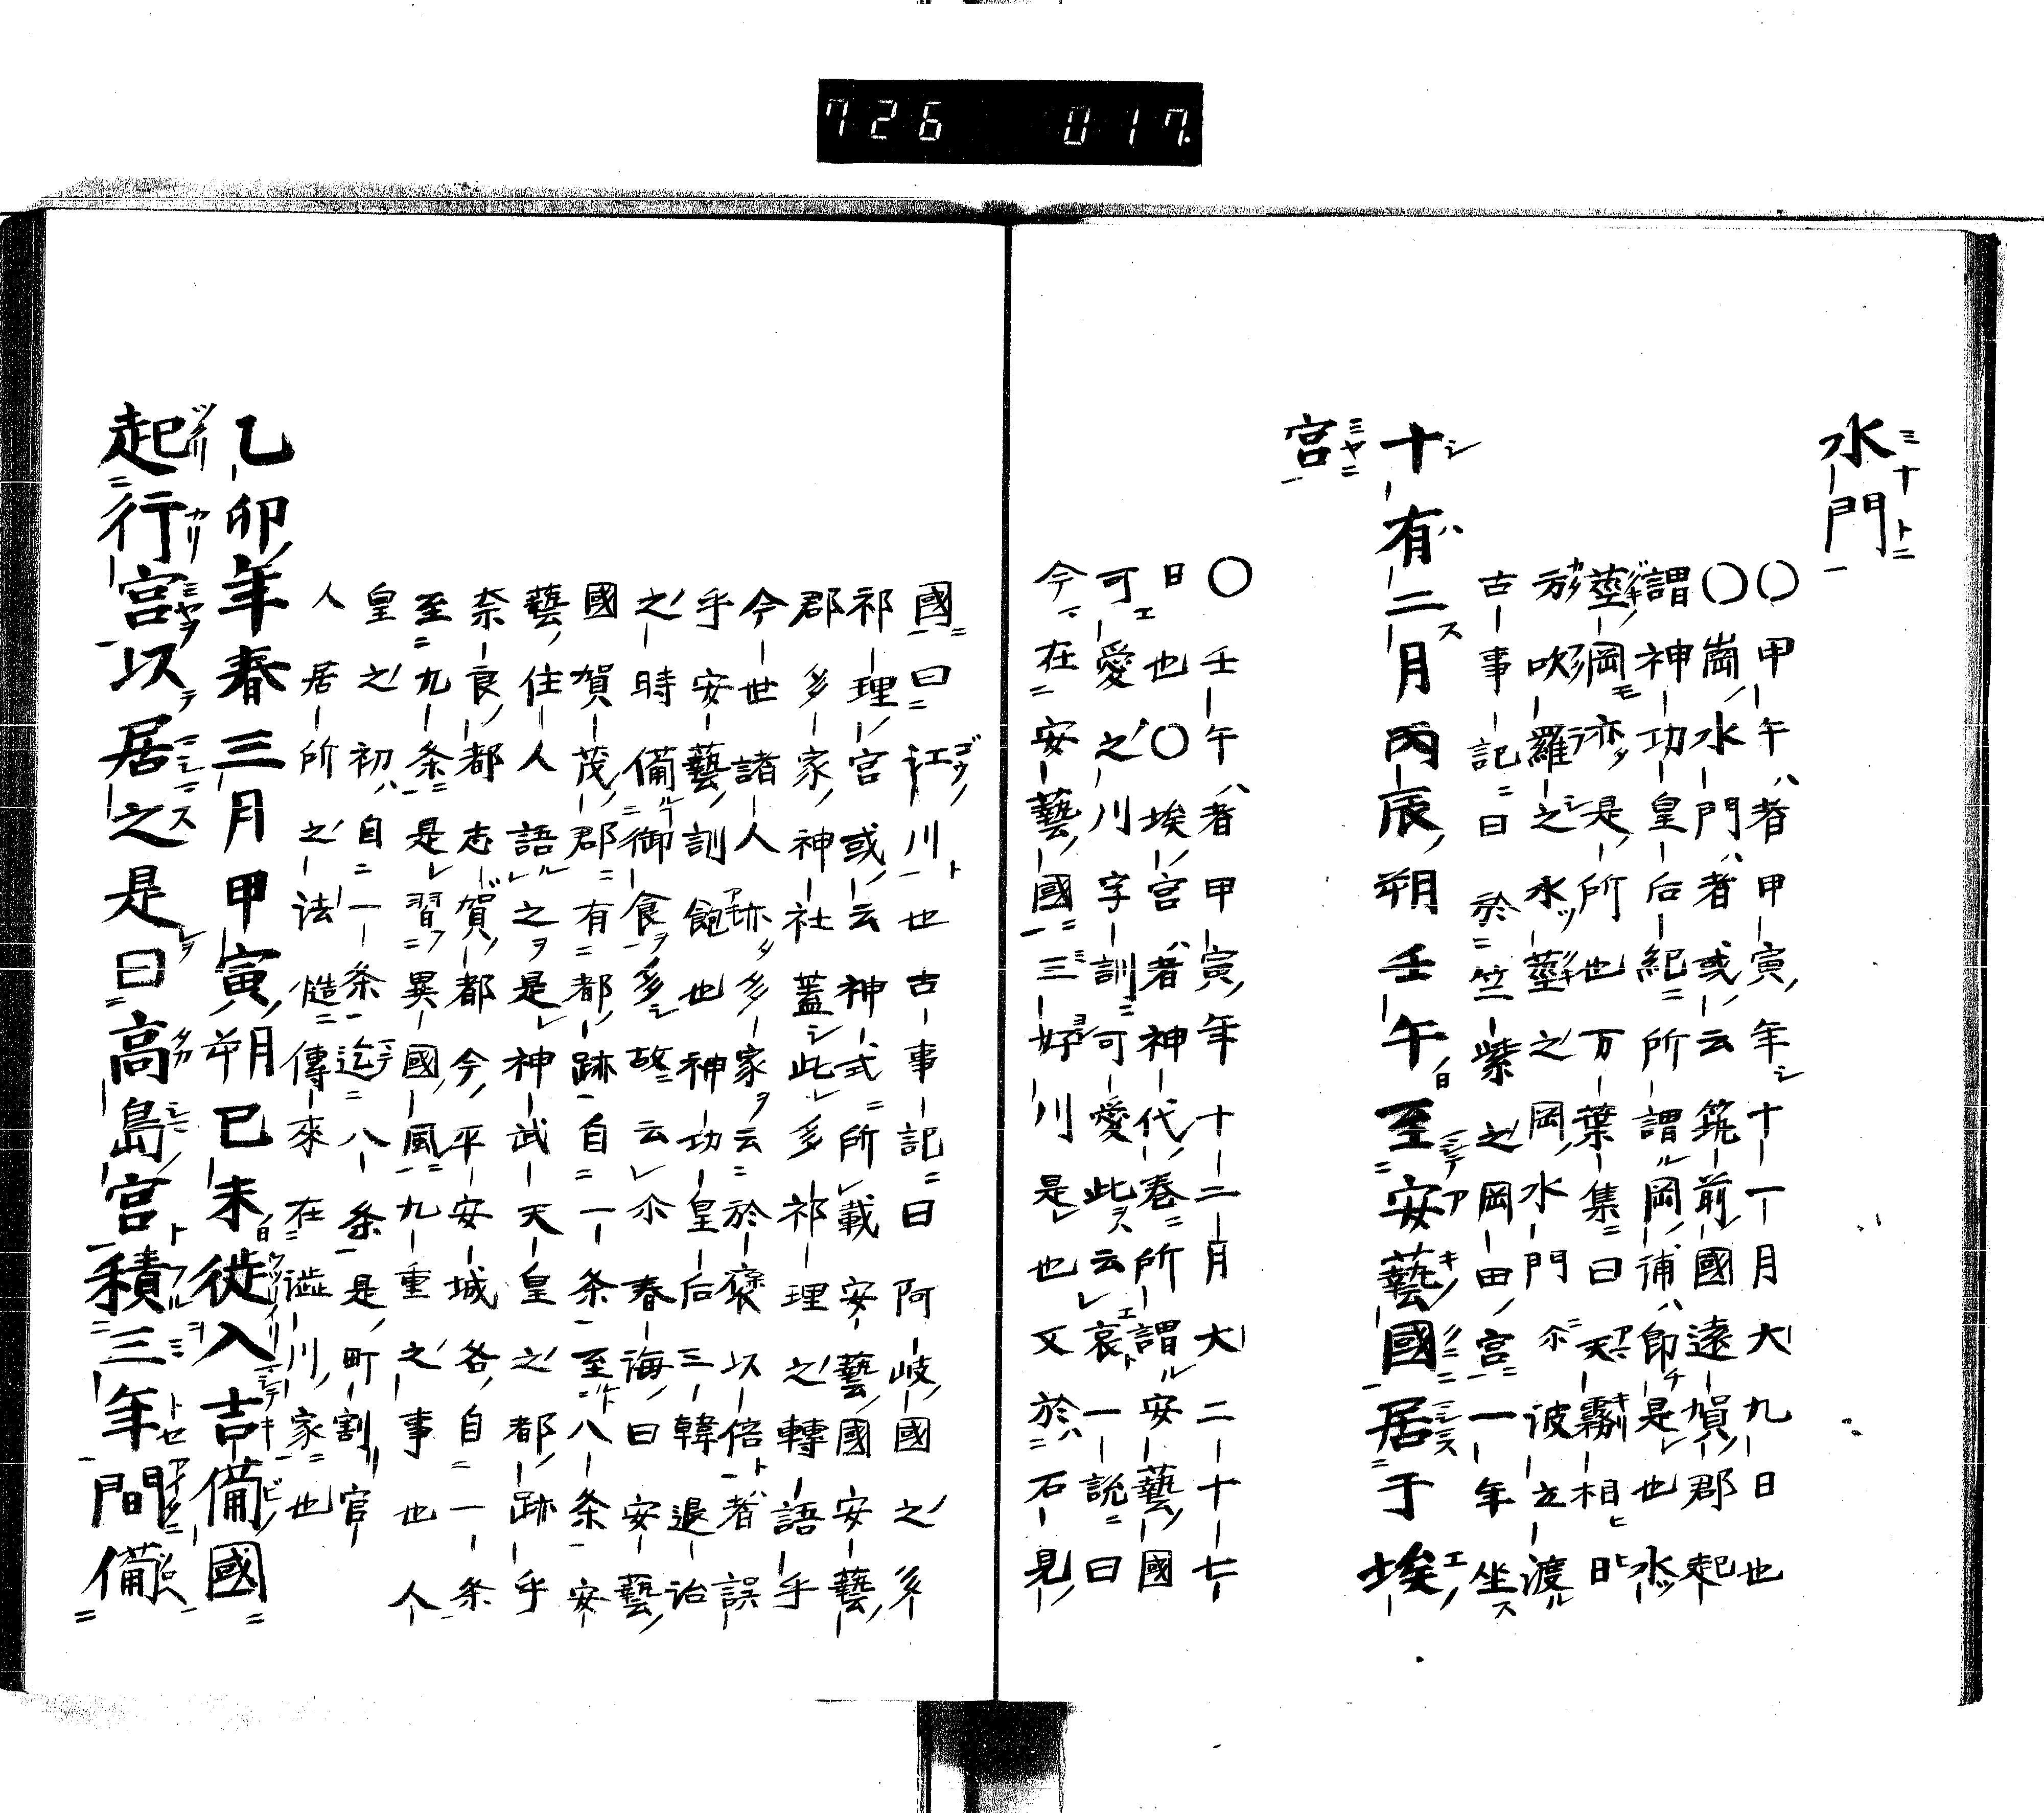 726 017
水門
〇甲午者甲寅年十一月大九日也
〇崗水門者或云筑前國遠賀郡起
謂神功皇后紀所謂岡浦即是也水
莖岡亦是所也万葉集曰天霧相日
方吹羅之水莖之岡水門尓波立渡
古事記曰於竺紫之岡田宮一年坐
十有二月丙辰朔壬午至安藝國居于埃
宮
〇壬午者甲寅年十二月大二十七
日也〇埃宮者神代卷所謂安藝國
可愛之川字訓可愛此云哀一說曰
今在安藝國三好川是也又於石見
國曰江川也古事記曰阿岐國之多
祁理宮或云神式所載安藝國安藝
郡多家神社蓋此多祁理之轉語乎
今世諸人跡多家云於褒以倍者誤
乎安藝訓飽也神功皇后三韓退治
之時備御食多故云尓春海曰安藝
國賀茂郡有都跡自一条至八条安
藝住人語之是神武天皇之都跡乎
奈良都志賀都今平安城各自一条
至九条是習異國風九重之事也人
皇之初自一条迄八条是町割官
人居所之法傳來在澁川家也
乙卯年春三月甲寅朔己未徙入吉備國
起行宮以居之是曰高島宮積三年間備